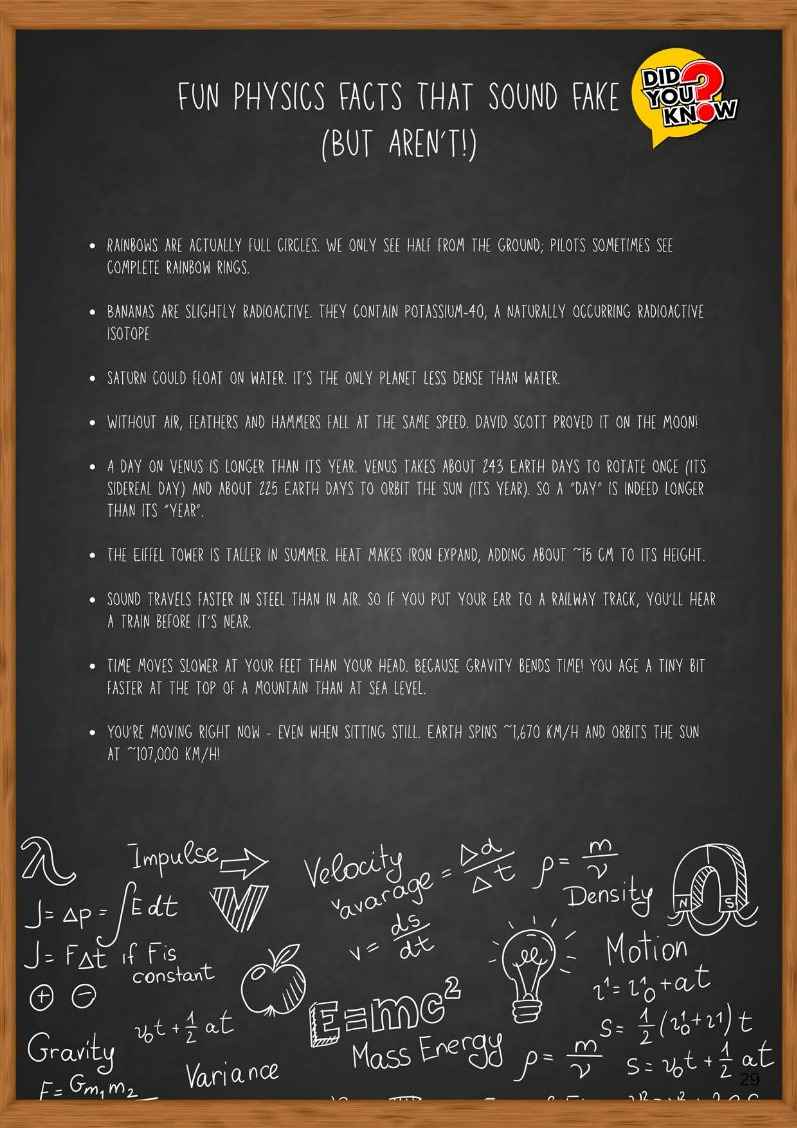 FUN PHYSICS FACTS THAT SOUND FAKE
(BUT AREN'T!)
DID
YOU
KNOW
?
• RAINBOWS ARE ACTUALLY FULL CIRCLES. WE ONLY SEE HALF FROM THE GROUND; PILOTS SOMETIMES SEE
COMPLETE RAINBOW RINGS.
• BANANAS ARE SLIGHTLY RADIOACTIVE. THEY CONTAIN POTASSIUM-40, A NATURALLY OCCURRING RADIOACTIVE
ISOTOPE
• SATURN COULD FLOAT ON WATER. IT'S THE ONLY PLANET LESS DENSE THAN WATER.
• WITHOUT AIR, FEATHERS AND HAMMERS FALL AT THE SAME SPEED. DAVID SCOTT PROVED IT ON THE MOON!
• A DAY ON VENUS IS LONGER THAN ITS YEAR. VENUS TAKES ABOUT 243 EARTH DAYS TO ROTATE ONCE (ITS
SIDEREAL DAY) AND ABOUT 225 EARTH DAYS TO ORBIT THE SUN (ITS YEAR). SO A "DAY" IS INDEED LONGER
THAN ITS "YEAR".
• THE EIFFEL TOWER IS TALLER IN SUMMER. HEAT MAKES IRON EXPAND, ADDING ABOUT ~15 CM TO ITS HEIGHT.
• SOUND TRAVELS FASTER IN STEEL THAN IN AIR. SO IF YOU PUT YOUR EAR TO A RAILWAY TRACK, YOU'LL HEAR
A TRAIN BEFORE IT'S NEAR.
• TIME MOVES SLOWER AT YOUR FEET THAN YOUR HEAD. BECAUSE GRAVITY BENDS TIME! YOU AGE A TINY BIT
FASTER AT THE TOP OF A MOUNTAIN THAN AT SEA LEVEL.
• YOU'RE MOVING RIGHT NOW - EVEN WHEN SITTING STILL. EARTH SPINS ~1,670 KM/H AND ORBITS THE SUN
AT ~107,000 KM/H!
λ
Impulse
J = Δp = ∫E dt
J = FΔt if F is
constant
+ −
v₀t + 1/2 at
Gravity
F = Gm₁m₂
Variance
Velocity
vavarage = Δd/Δt
v = ds/dt
E=mc²
Mass Energy
ρ = m/ν
Density
N S
Motion
v¹ = v¹₀ + at
S = 1/2 (v¹₀ + v¹) t
ρ = m/ν
S = v₀t + 1/2 at
29